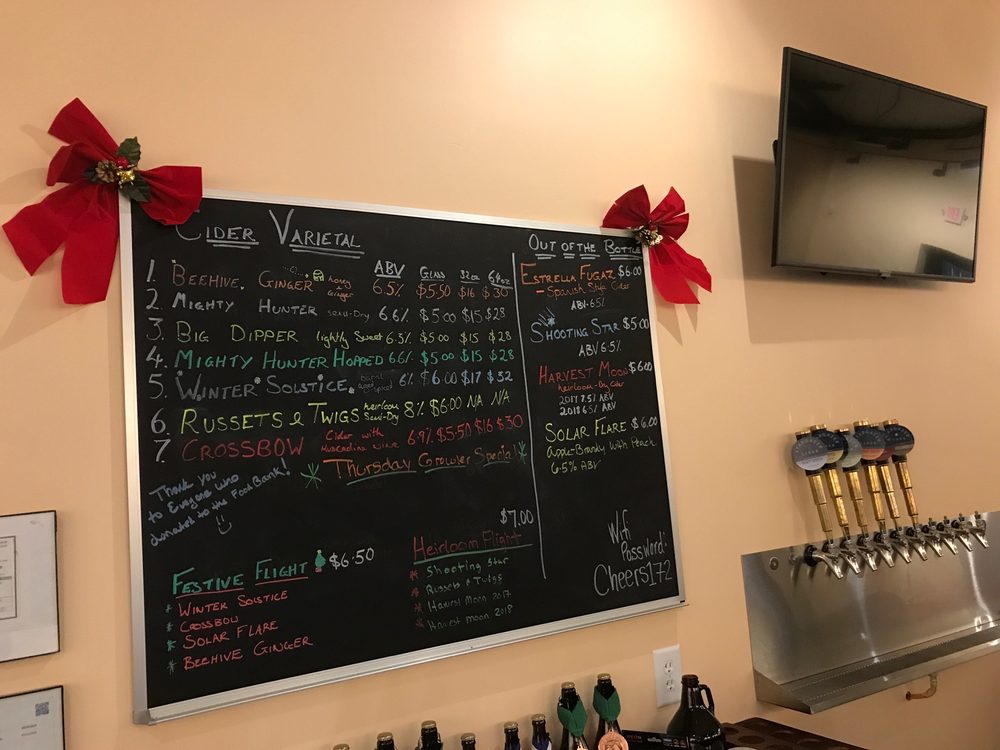 CIDER VARIETAL
ABV GLASS 32oz 64oz
1. BEEHIVE GINGER honey ginger 6.5% $5.50 $16 $30
2. MIGHTY HUNTER semi-Dry 6.6% $5.00 $15 $28
3. BIG DIPPER lightly Sweet 6.3% $5.00 $15 $28
4. MIGHTY HUNTER HOPPED 6.6% $5.00 $15 $28
5. WINTER SOLSTICE 6% $6.00 $17 $32
6. RUSSETS & TWIGS heirloom Semi-Dry 8% $6.00 NA NA
7 CROSSBOW Cider with Muscadine wine 6.9% $5.50 $16 $30
Thursday Growler Special
Thank you
to Everyone who
donated to the Food Bank!
FESTIVE FLIGHT $6.50
WINTER SOLSTICE
CROSSBOW
SOLAR FLARE
BEEHIVE GINGER
$7.00
Heirloom Flight
Shooting Star
Russets & Twigs
Harvest Moon 2017
Harvest Moon 2018
OUT OF THE BOTTLE
ESTRELLA FUGAZ $6.00
- Spanish Style Cider
ABV 6.5%
SHOOTING STAR $5.00
ABV 6.5%
HARVEST MOON $6.00
heirloom-Dry Cider
2017 7.5% ABV
2018 6.5% ABV
SOLAR FLARE $6.00
Apple-Brandy with Peach
6.5% ABV
Wifi
Password:
Cheers172